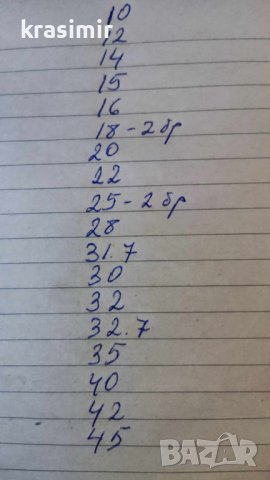 krasimir
10
12
14
15
16
18 - 2бр
20
22
25 - 2бр
28
31.7
30
32
32.7
35
40
42
45
BAZAR